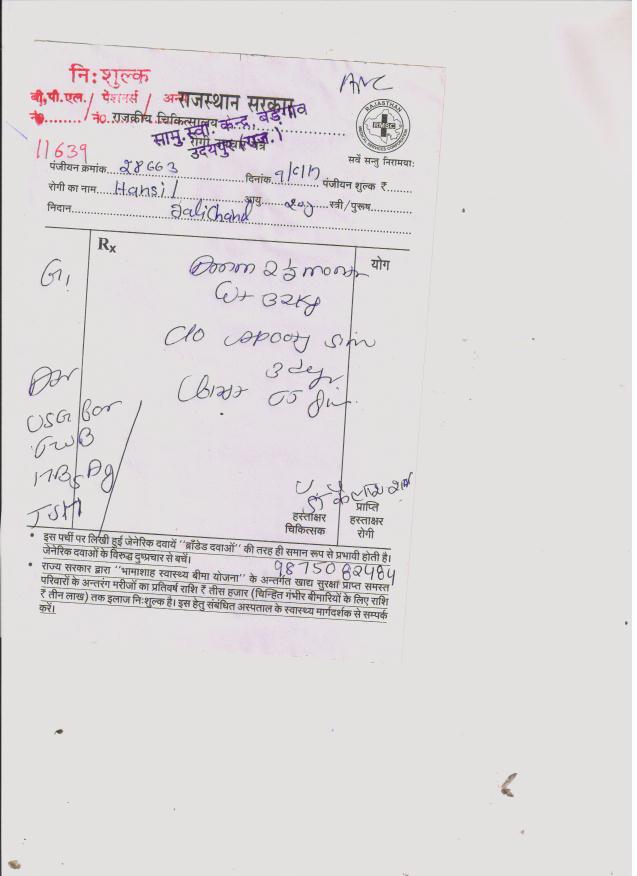 ANC
नि: शुल्क
बी.पी.एल./ पेंशनर्स / अन्य
राजस्थान सरकार
नं०......... नं०.
राजकीय चिकित्सालय
सामु. स्वा. केन्द्र, बड़गांव
उदयपुर (राज.)
RAJASTHAN MEDICAL SERVICES CORPORATION
RMSC
सर्वे सन्तु निरामयाः
11639
पंजीयन क्रमांक 28663 दिनांक पंजीयन शुल्क ₹
रोगी का नाम Hansi / आयु 20y स्त्री/पुरूष
निदान Jalichand
Rx
योग
G1 2½ month
Wt 32kg
C/O
3 day
USG for
FWB
HBsAg
TSH
हस्ताक्षर चिकित्सक
प्राप्ति हस्ताक्षर रोगी
• इस पर्ची पर लिखी हुई जेनेरिक दवायें "ब्राँडेड दवाओं" की तरह ही समान रूप से प्रभावी होती है।
जेनेरिक दवाओं के विरुद्ध दुष्प्रचार से बचें।
9875082484
• राज्य सरकार द्वारा "भामाशाह स्वास्थ्य बीमा योजना" के अन्तर्गत खाद्य सुरक्षा प्राप्त समस्त
परिवारों के अन्तरंग मरीजों का प्रतिवर्ष राशि ₹ तीस हजार (चिन्हित गंभीर बीमारियों के लिए राशि
₹ तीन लाख) तक इलाज निःशुल्क है। इस हेतु संबंधित अस्पताल के स्वास्थ्य मार्गदर्शक से सम्पर्क
करें।